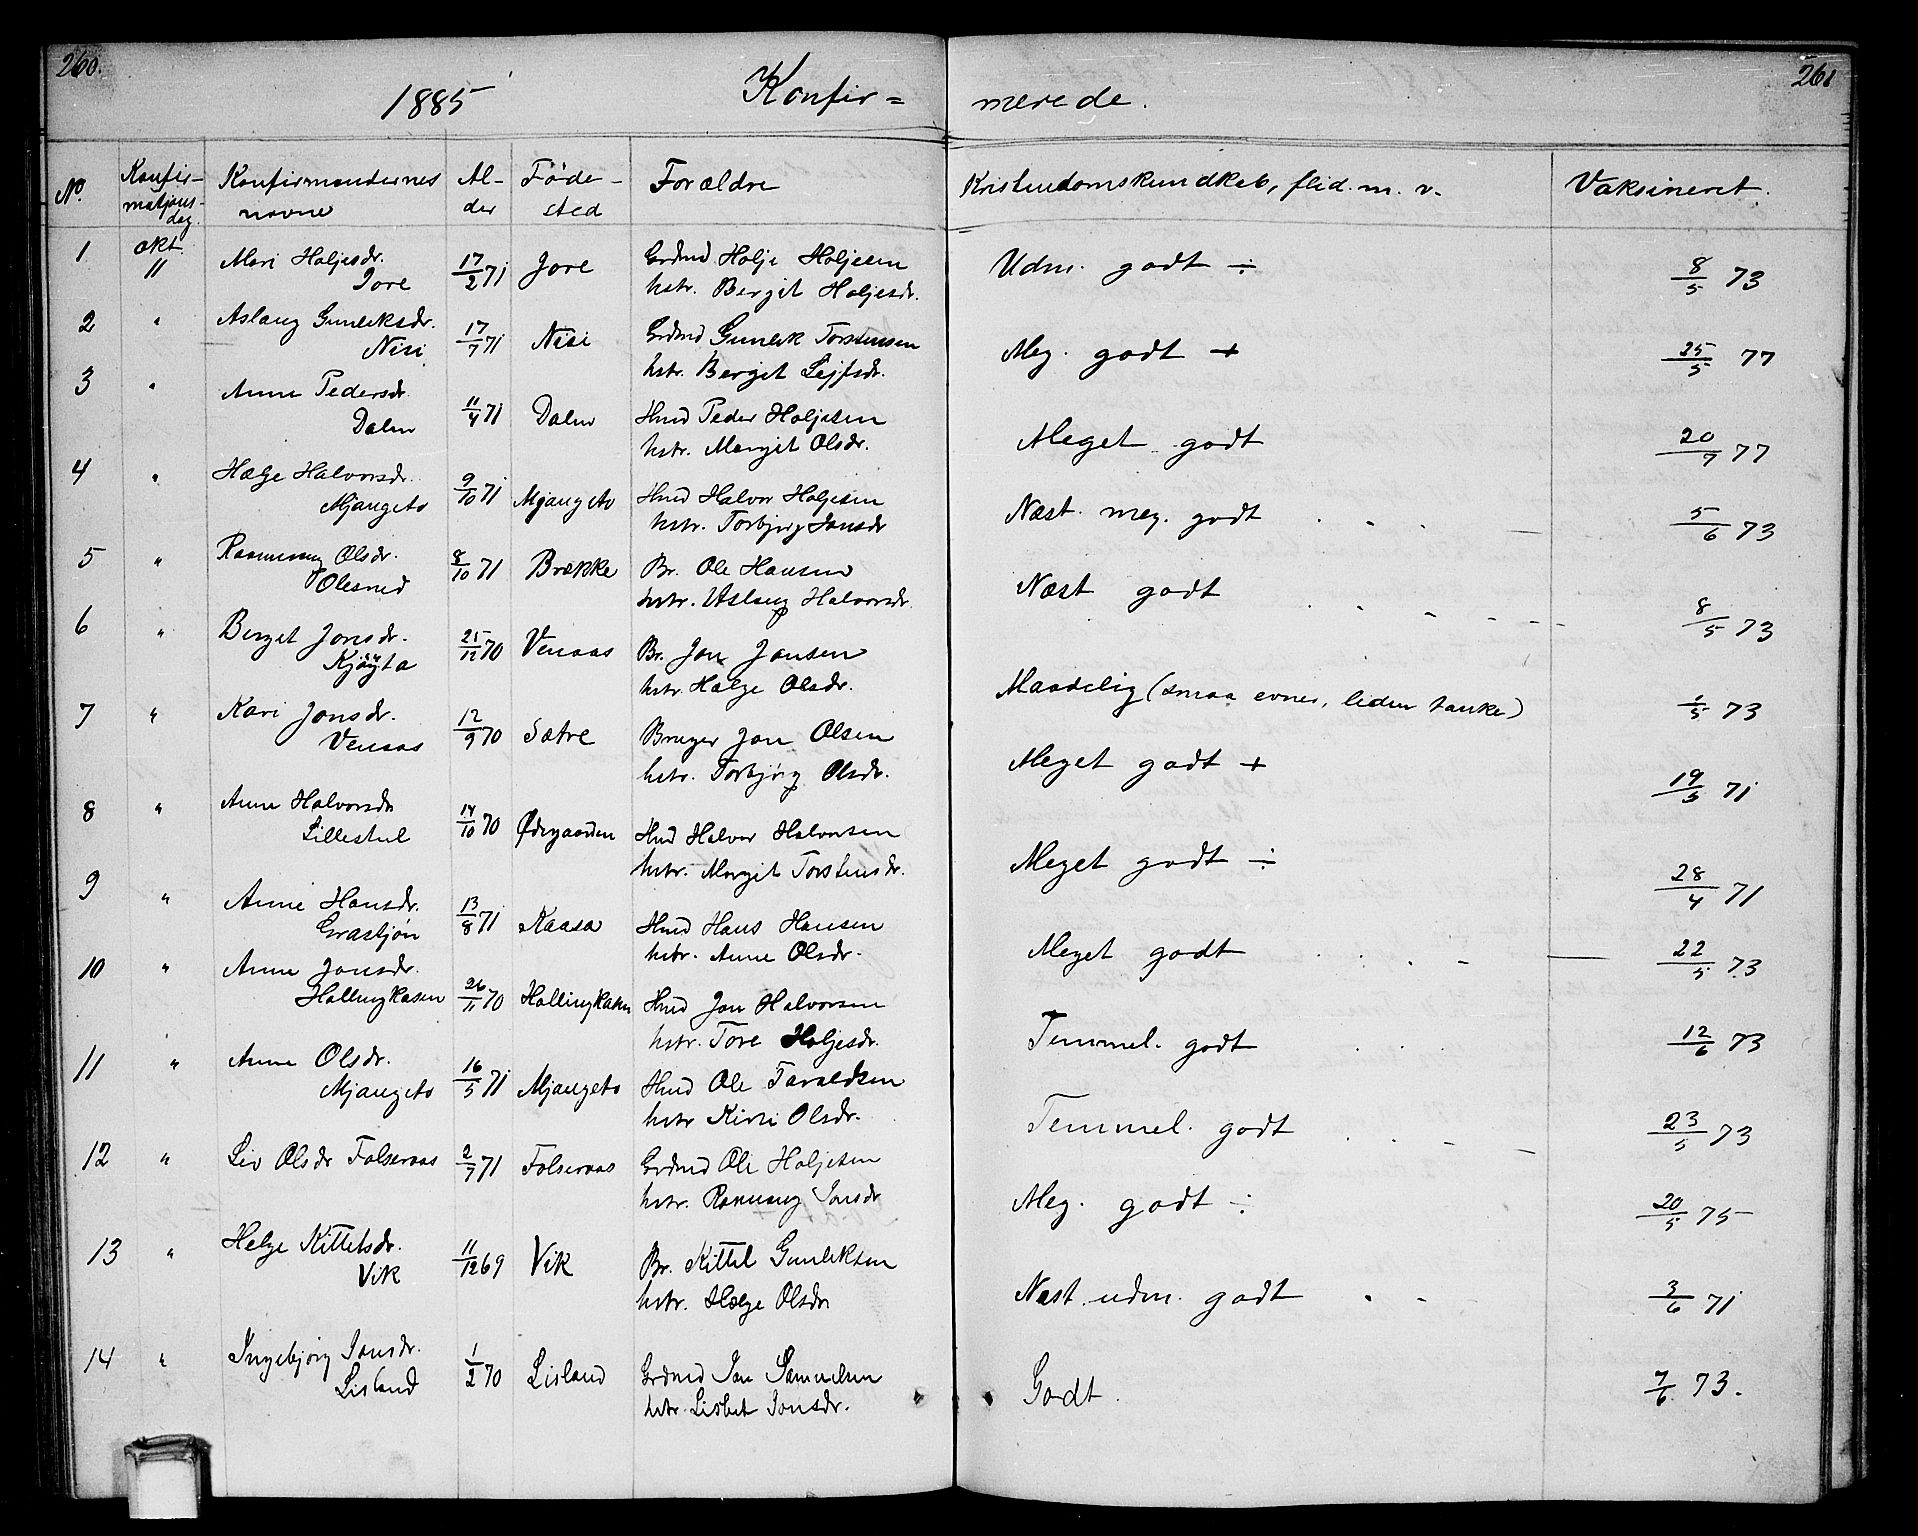 260. 261
1885 Konfir= merede.
No. Konfir-matjons-dag. Konfirmandernes navne Al-der Føde-sted Forældre Kristendomskundskab, flid m. v. Vaksineret.
1 okt. 11 Mari Holjesdr. 17/2 71 Jore Grdmd Holje Holjesen Udm. godt ÷ 8/5 73
Jore hstr. Bergit Holjesdr.
2 " Aslaug Gunleksdr. 17/7 71 Nisi Grdmd Gunlek Torstensen Meg. godt + 25/5 77
Nisi hstr. Bergit Lejfsdr.
3 " Anne Pedersdr. 11/4 71 Dalen Hmd Peder Holjesen Meget godt 20/7 77
Dalen hstr. Margit Olsdr.
4 " Hæge Halvorsdr. 9/10 71 Mjaugeto Hmd Halvor Holjesen Næst. meg. godt 5/6 73
Mjaugeto hstr. Torbjørg Jonsdr
5 " Olsdr. 8/10 71 Brække Br. Ole Hansen Næst godt 8/5 73
hstr. Aslaug Halvorsdr.
6 " Berget Jonsdr. 25/12 70 Venaas Br. Jon Jonsen Maadelig (smaa evner, liden tanke) /5 73
Kjøyta hstr. Hælge Olsdr.
7 " Kari Jonsdr. 12/9 70 Sætre Bruger Jon Olsen Meget godt + 19/5 71
Venaas hstr. Torbjørg Olsdr.
8 " Anne Halvorsdr 14/10 70 Ødegaarden Hmd Halvor Halvorsen Meget godt ÷ 28/4 71
Lillestul hstr. Margit Torstensdr.
9 " Anne Hansdr. 13/8 71 Kaasa Hmd Hans Hansen Meget godt 22/5 73
Grastjøn hstr. Anne Olsdr.
10 " Anne Jonsdr. 26/11 70 Hollingkasen Hmd Jon Halvorsen Temmel. godt 12/6 73
Hollingkasen hstr. Tore Holjesdr.
11 " Anne Olsdr. 16/5 71 Mjaugeto Hmd Ole Taraldsen Temmel. godt 23/5 73
Mjaugeto hstr Kirsi Olsdr.
12 " Liv Olsdr Folseraas 2/7 71 Folseraas Grdmd Ole Holjesen Meg. godt ÷ 20/5 75
hstr. Jonsdr
13 " Helge Kittelsdr. 11/12 69 Vik Br. Kittel Gunleksen Næst. udm. godt 3/6 71
Vik hstr. Hælge Olsdr
14 " Ingebjørg Jonsdr. 1/2 70 Lisland Grdmd Jon Samuelsen Godt. 7/6 73.
Lisland hstr. Lisbet Jonsdr.